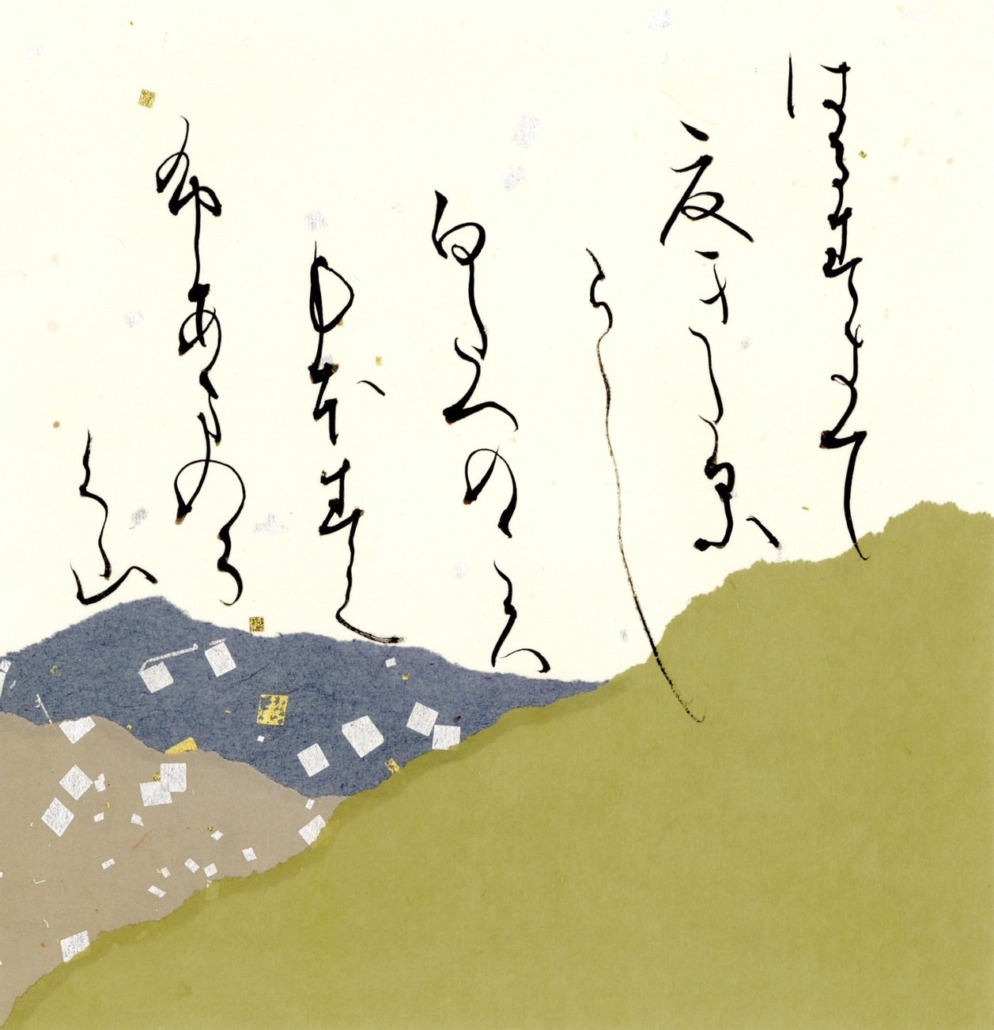 はるすきて
夏きにけ
らし
白たへのころ
もほすて
ふあまのか
く山